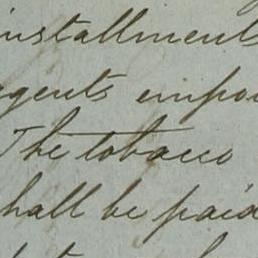 installments
agents empow
The tobacco
shall be paid